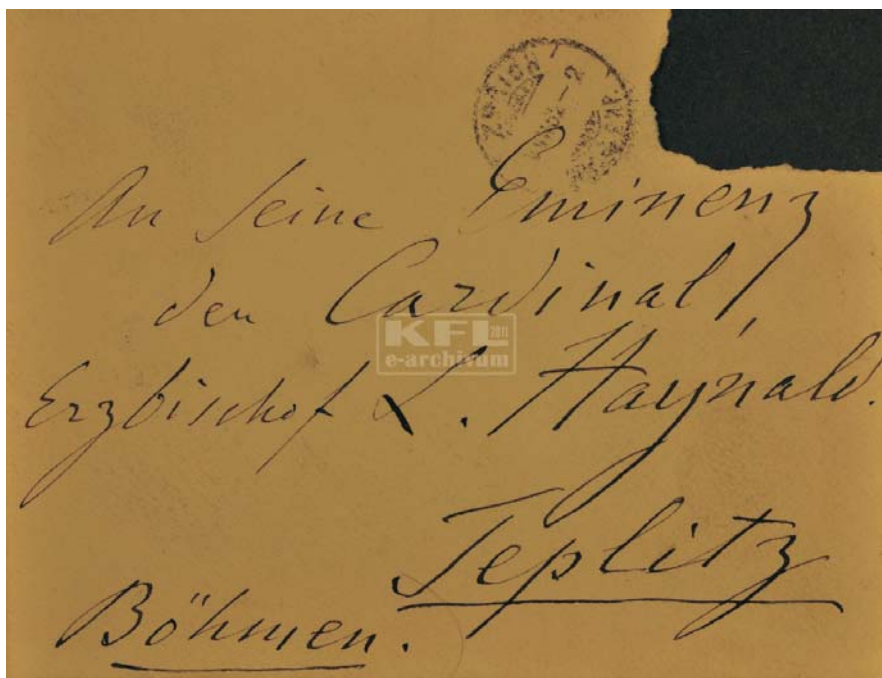 An seine Eminenz
den Cardinal,
Erzbischof L. Haynald.
Teplitz
Böhmen.
KFL 2011
e-archivum